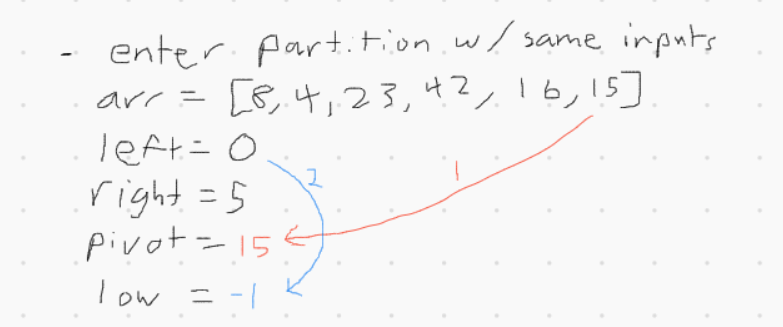 - enter partition w/ same inputs
arr = [8,4,23,42,16,15]
left = 0
2
1
right = 5
pivot = 15
low = -1